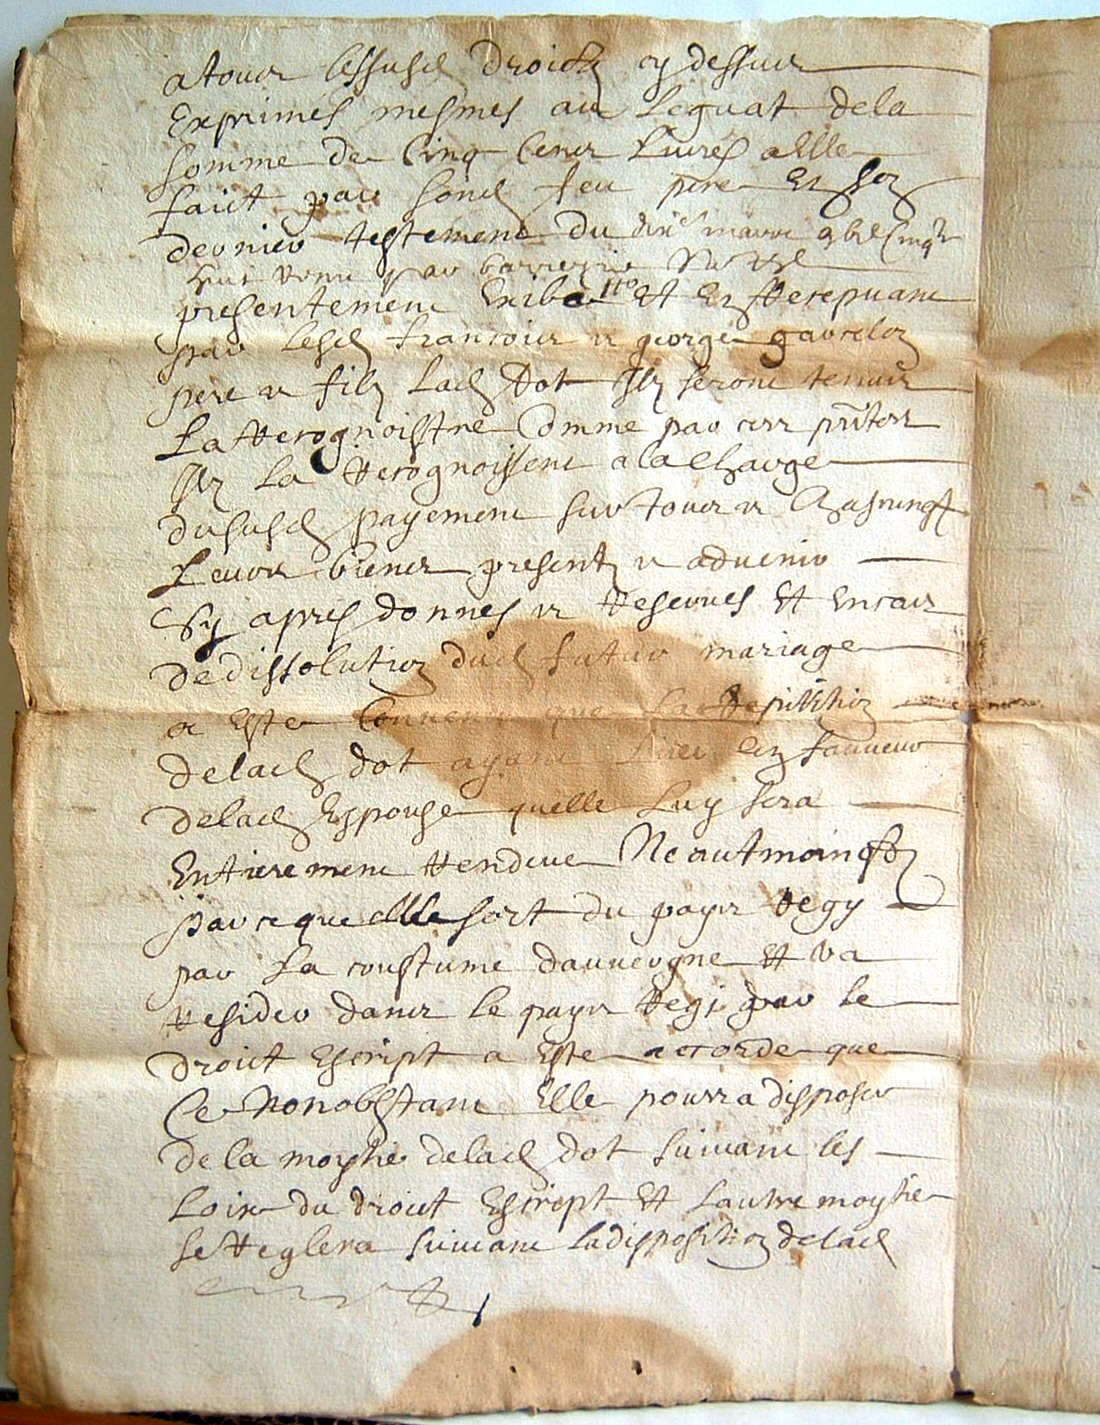 a tous lessusd droictz cy dessus
Exprimes mesmes au Leguat de la
somme de Cinq Cens Livres a Elle
faict par sond feu pere En son
dernier testement du
par
presentement Et En Recepvant
par lesd francois et george
pere et filz Lad dot Ilz seront tenus
La Recognoistre Comme par ces pntes
Ilz La Recognoissent a la Charge
dususd payement sur tous et Chascungz
Leurs biens presentz et advenir
Cy apres donnes et Reserves Et En cas
de dissolution dud futur mariage
a Este Convenu que La Repitition
de lad dot ayant Lieu en faveur
de lad Espouse quelle Luy sera
Entierement Rendue Neautmoingtz
par ce que elle sort du pays Regy
par La coustume dauvergne Et va
Resider dans le pays Regi par le
droict Escript a Este accorde que
Ce Nonobstant Elle pourra disposer
de la moytie de lad dot suivant les
Loix du droict Escript Et Lautre moytie
se Reglera suivant La disposition de lad